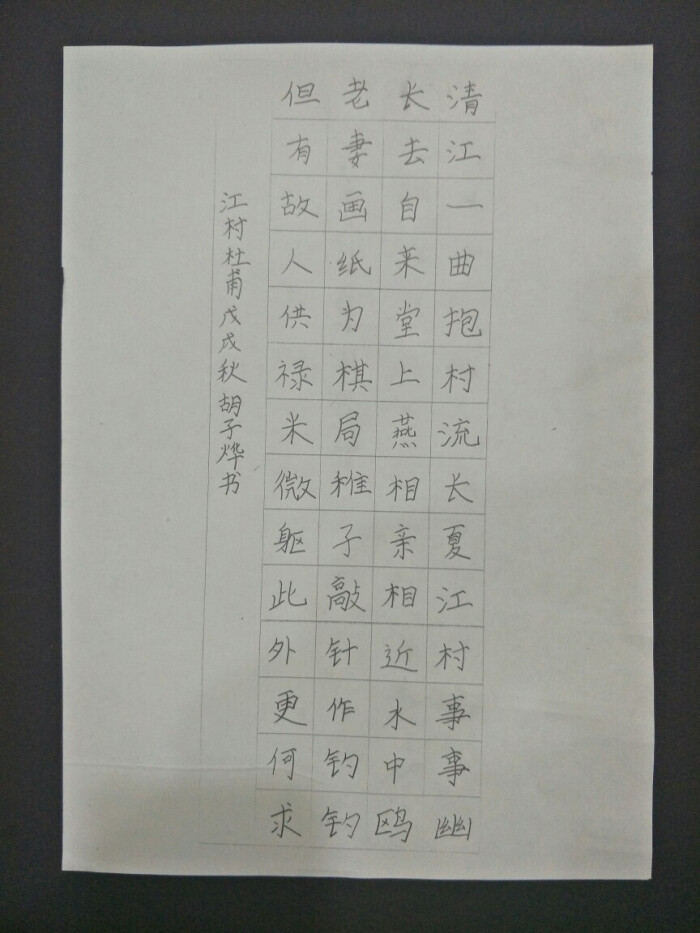 清江一曲抱村流长夏江村事事幽
长去自来堂上燕相亲相近水中鸥
老妻画纸为棋局稚子敲针作钓钓
但有故人供禄米微躯此外更何求
江村杜甫戊戌秋胡子烨书